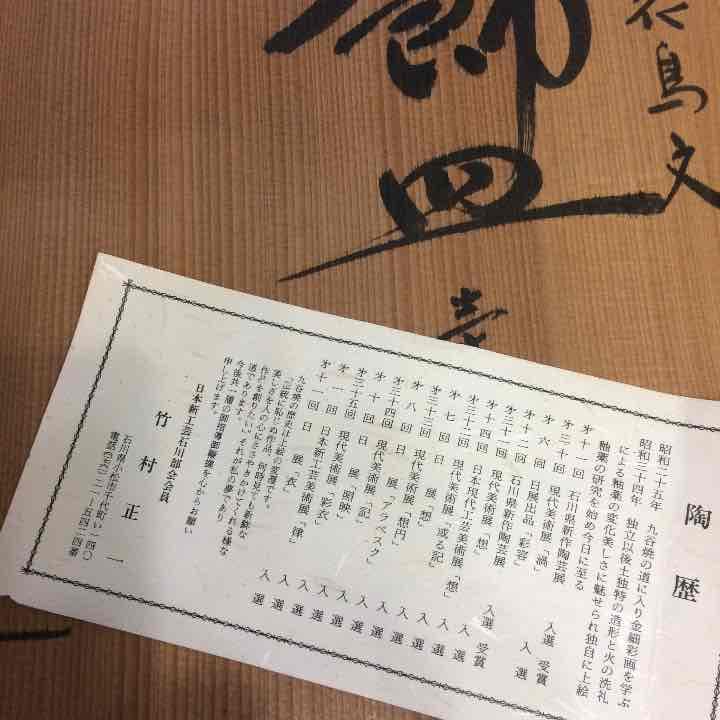 鳥文
飾皿
陶歴
昭和二十五年　九谷焼の道に入り金襴彩画を学ぶ
昭和三十四年　独立以後土独特の造形と火の洗礼
による釉薬の変化美しさに魅せられ独自に上絵
釉薬の研究を始め今日に至る
才十一回　石川県新作陶芸展　入選　受賞
才三十回　現代美術展「渦」　入選
才六回　日展出品「彩容」
才十二回　石川県新作陶芸展　入選　受賞
才十四回　日本現代工芸美術展「想」　入選
才三十二回　現代美術展「想」　入選
才七回　日展「或る記」　入選
才三十三回　現代美術展「想」　入選
才八回　日展「想円」　入選
才三十四回　現代美術展「アラベスク」　入選
才十回　日展「記」　入選
才三十五回　現代美術展「照映」　入選
才一回　日本新工芸美術展「彩衣」　入選
才十一回　日展「衣」「律」　入選
九谷焼の歴史は上絵の変遷です。
「正統に恥じぬ作品、何時見ても新鮮な
美しさを人の心にささやきかけてくれる様な
作品を創りたい。それが私の夢であり
道であります。
今後共一層の御指導御鞭撻を心からお願い
申し上げます。
日本新工芸石川部会会員
竹村正一
石川県小松市千代町い一四〇
電話〇七六一―二二―五四二四番